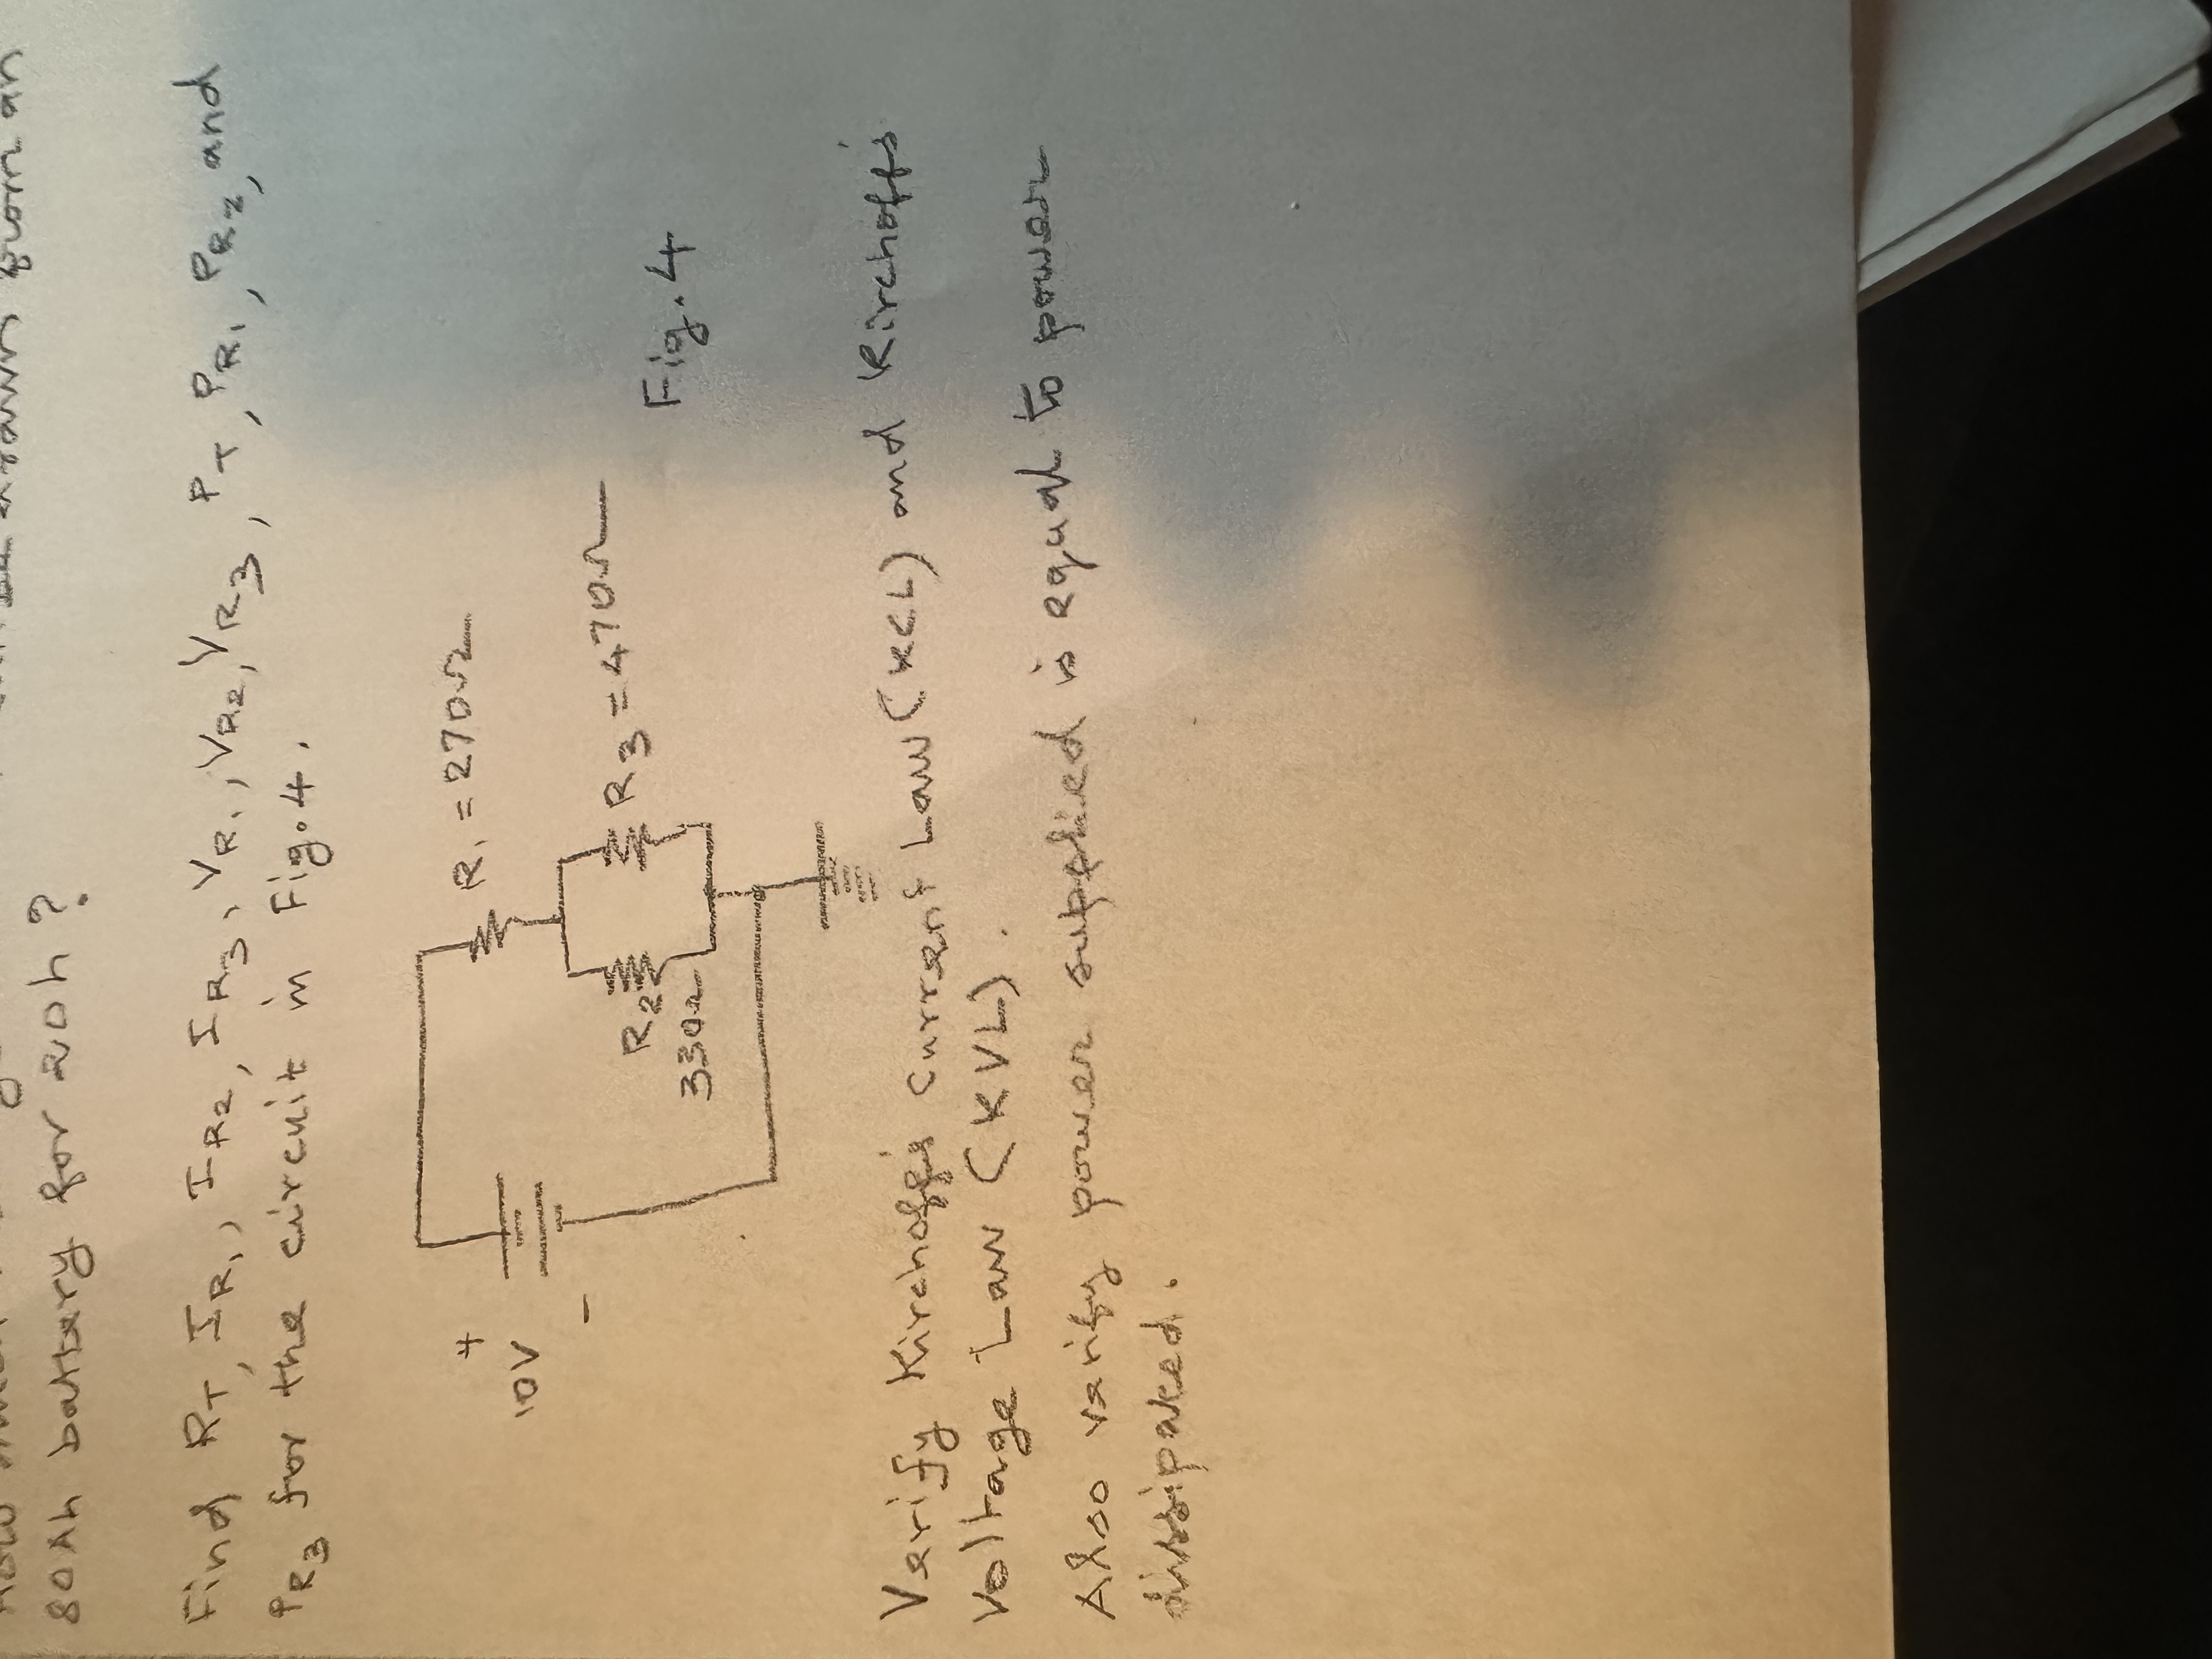 80Ah battery for 20h ?
Find RT, IR1, IR2, IR3, VR1, VR2, VR3, PT, PR1, PR2, and
PR3 for the circuit in Fig.4.
R1 = 270Ω
+
10V
-
R2
330Ω
R3 = 470Ω
Fig.4
Verify Kirchoffs Current Law (KCL) and Kirchoffs
Voltage Law (KVL).
Also verify power supplied is equal to power
dissipated.